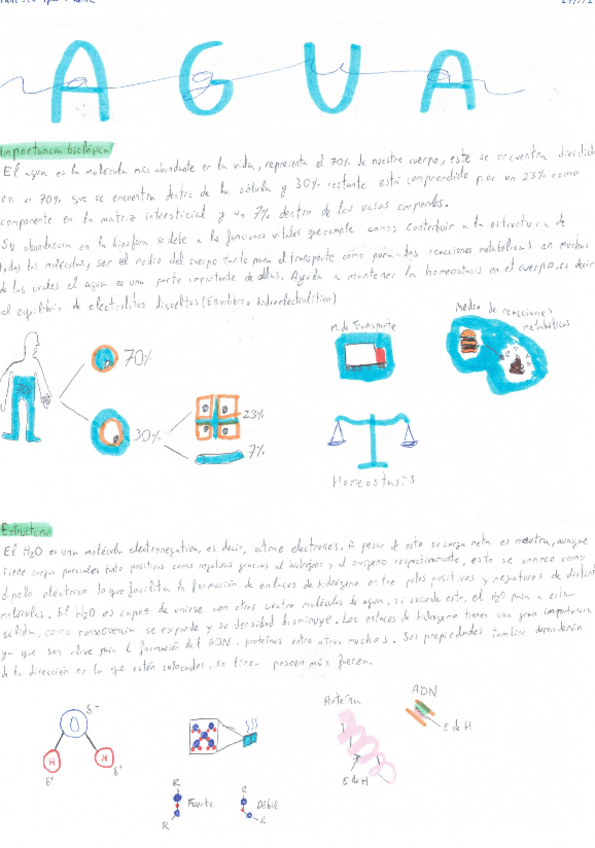 AGUA
Importancia biológica
El agua es la molécula más abundante en la vida, representa el 70% de nuestro cuerpo, este se encuentra dividido
en el 70% que se encuentra dentro de la célula y 30% restante está comprendido por un 23% como
componente en la matriz intersticial y un 7% dentro de los vasos corporales.
Su abundancia en la biosfera se debe a las funciones vitales que cumple como; contribuir a la estructura de
todas las moléculas, ser el medio del cuerpo tanto para el transporte como para las reacciones metabólicas en muchas
de las cuales el agua es una parte importante de ellas. Ayuda a mantener la homeostasis en el cuerpo, es decir
el equilibrio de electrolitos disueltos (Equilibrio hidroelectrolítico)
M. de Transporte
Medio de reacciones
metabólicas
70%
70%
30%
23%
7%
Homeostasis
Estructura
El H₂O es una molécula electronegativa, es decir, atrae electrones. A pesar de esto su carga neta es neutra, aunque
tiene cargas parciales tanto positivas como negativas gracias al hidrógeno y al oxígeno respectivamente, esto se conoce como
dipolo eléctrico lo que facilita la formación de enlaces de hidrógeno entre polos positivos y negativos de distintas
moléculas. El H₂O es capaz de unirse con otras cuatro moléculas de agua, si sucede esto, el H₂O pasa a estar
sólida, como consecuencia se expande y su densidad disminuye. Los enlaces de hidrógeno tienen una gran importancia
ya que son clave para la formación del ADN, proteínas entre otras muchos. Sus propiedades también dependerán
de la dirección en la que estén colocados, en línea poseen más fuerza.
δ⁻
O
H
H
δ⁺
δ⁺
Proteína
E de H
ADN
E de H
R
Fuerte
R
R
Débil
R